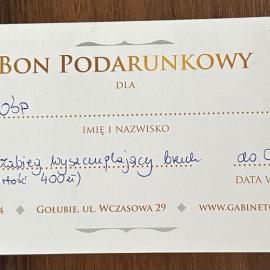 BON PODARUNKOWY
DLA
OŚP
IMIĘ I NAZWISKO
zabieg wyszczuplający brzuch do
wartość 400zł) DATA W
4 ◆ GOŁUBIE, UL. WCZASOWA 29 ◆ WWW.GABINET